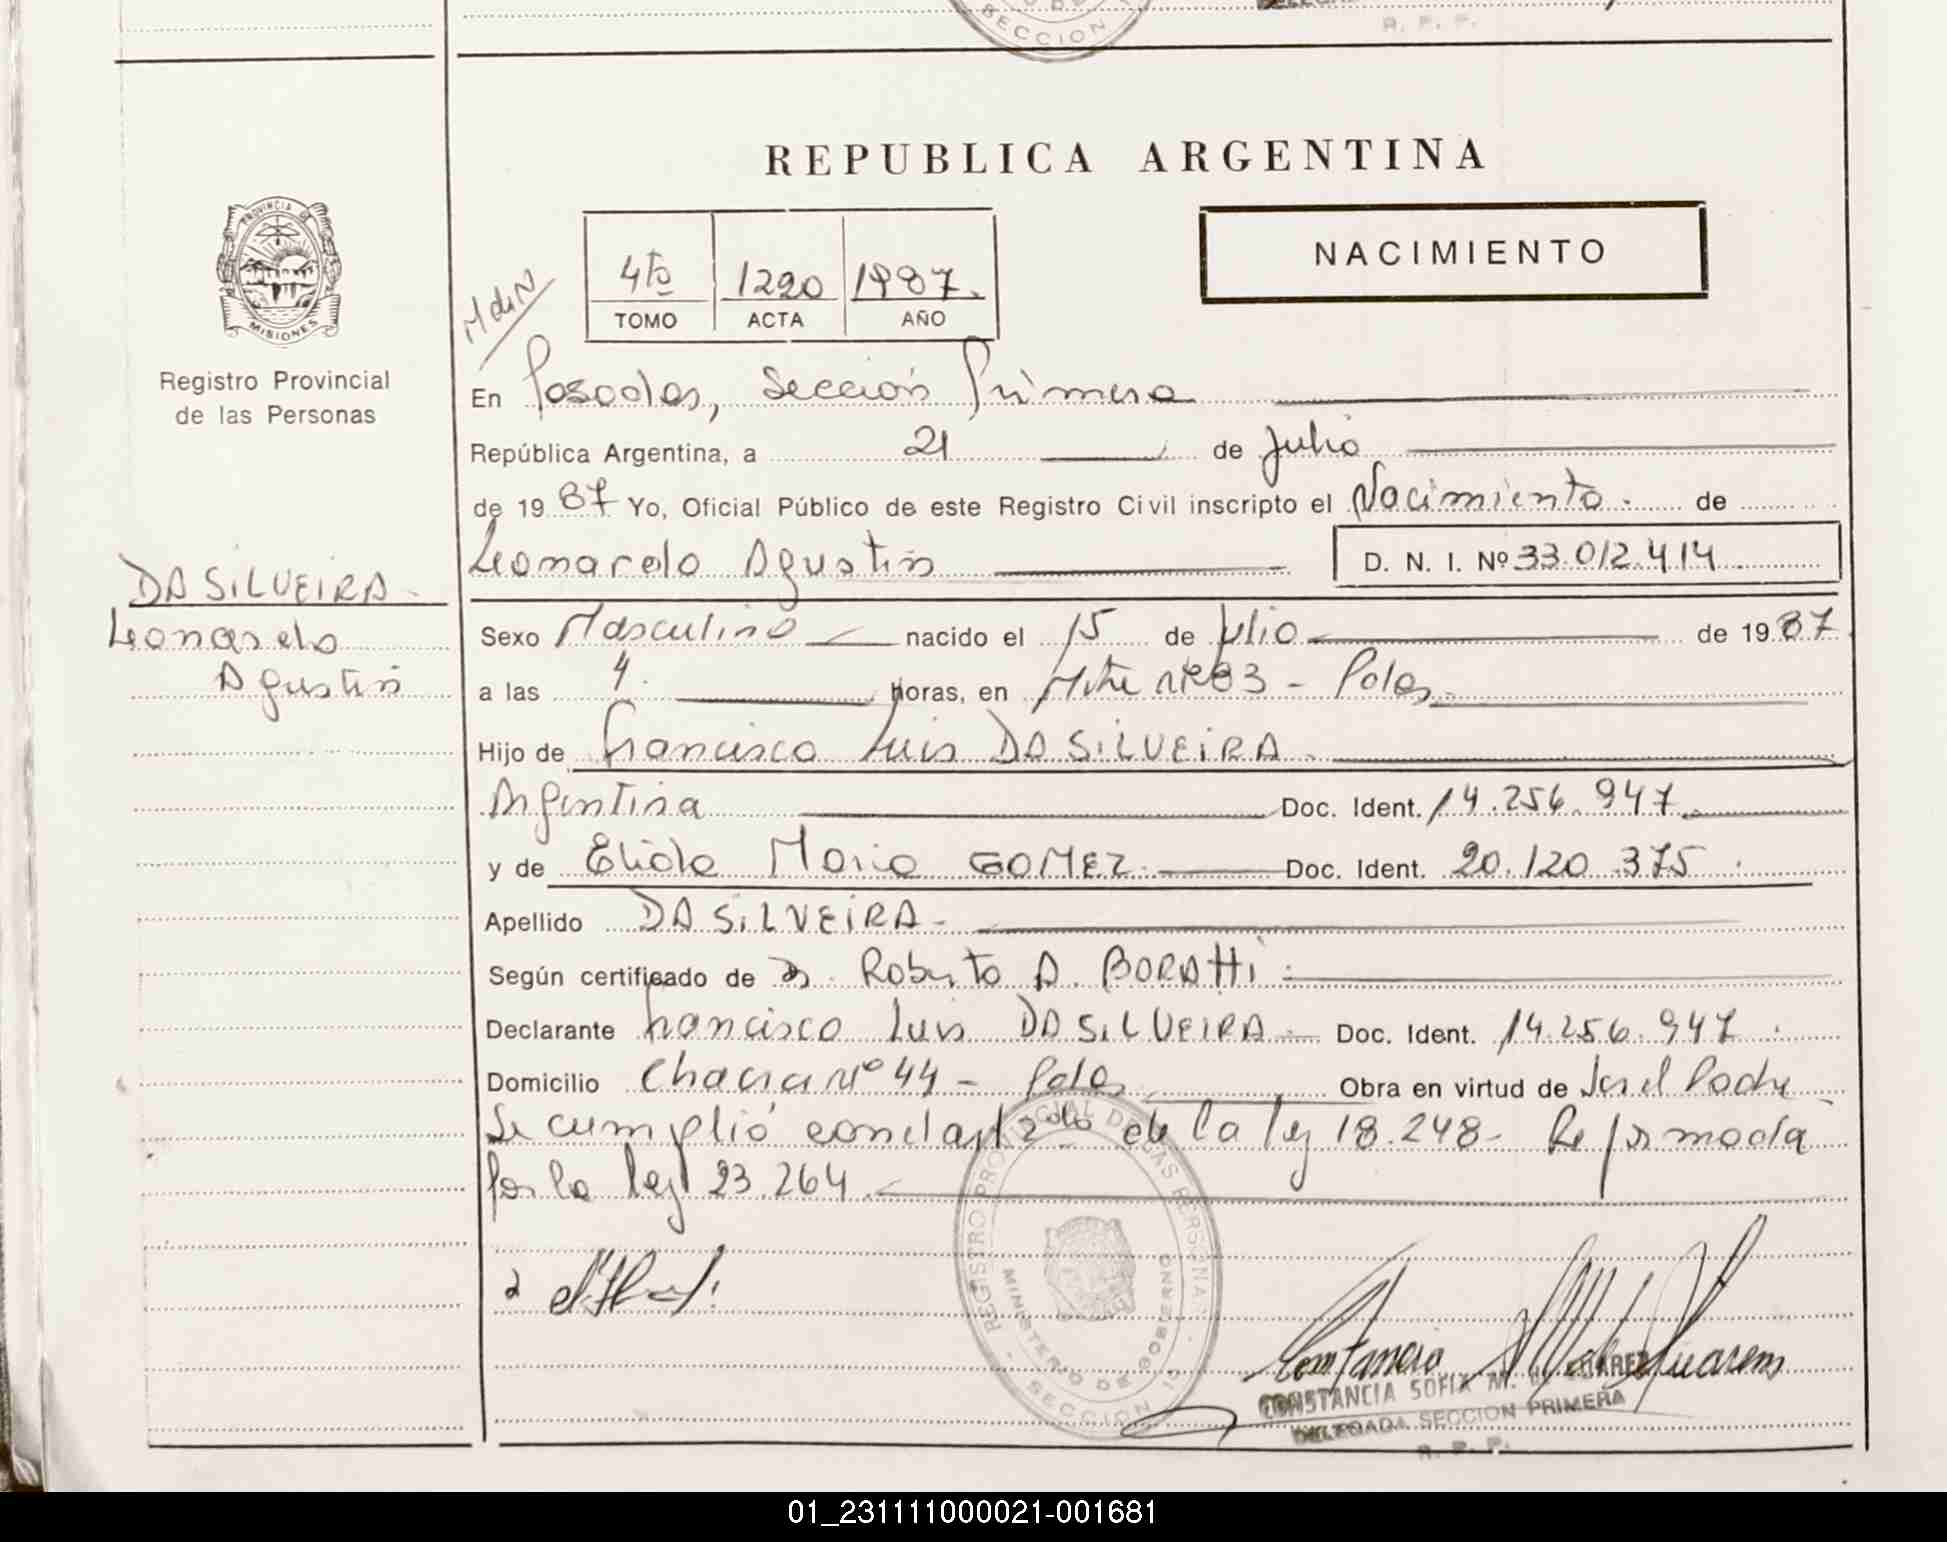 SECCION
R. P. P.
REPUBLICA ARGENTINA
PROVINCIA DE
MISIONES
Registro Provincial
de las Personas
4to 1220 1987.
TOMO ACTA AÑO
NACIMIENTO
En Posadas, Sección Primera
República Argentina, a 21 de Julio
de 1987 Yo, Oficial Público de este Registro Civil inscripto el Nacimiento. de
Leonardo Agustin
D. N. I. Nº 33.012.414
DA SiLVEiRA.
Leonardo
Agustin
Sexo Masculino nacido el 15 de Julio de 1987
a las 4. horas, en Mitre nº 83 - Pdas.
Hijo de Francisco Luis DA SiLVEiRA.
Argentina Doc. Ident. 14.256.947
y de Elida Maria GOMEZ. Doc. Ident. 20.120.375.
Apellido DA SiLVEiRA-
Según certificado de Dr. Roberto A. BORAtti
Declarante Francisco Luis DA SiLVEIRA. Doc. Ident. 14.256.947.
Domicilio Chacra Nº 44 - Pdas Obra en virtud de Ser el Padre
Se cumplió con el art 2do de la ley 18.248- Reformada
por la ley 23.264.
REGISTRO PROVINCIAL DE LAS PERSONAS
MINISTERIO DE GOBIERNO
SECCION 1
CONSTANCIA SOFIA M. SUAREZ
DELEGADA SECCION PRIMERA
R. P. P.
01_231111000021-001681